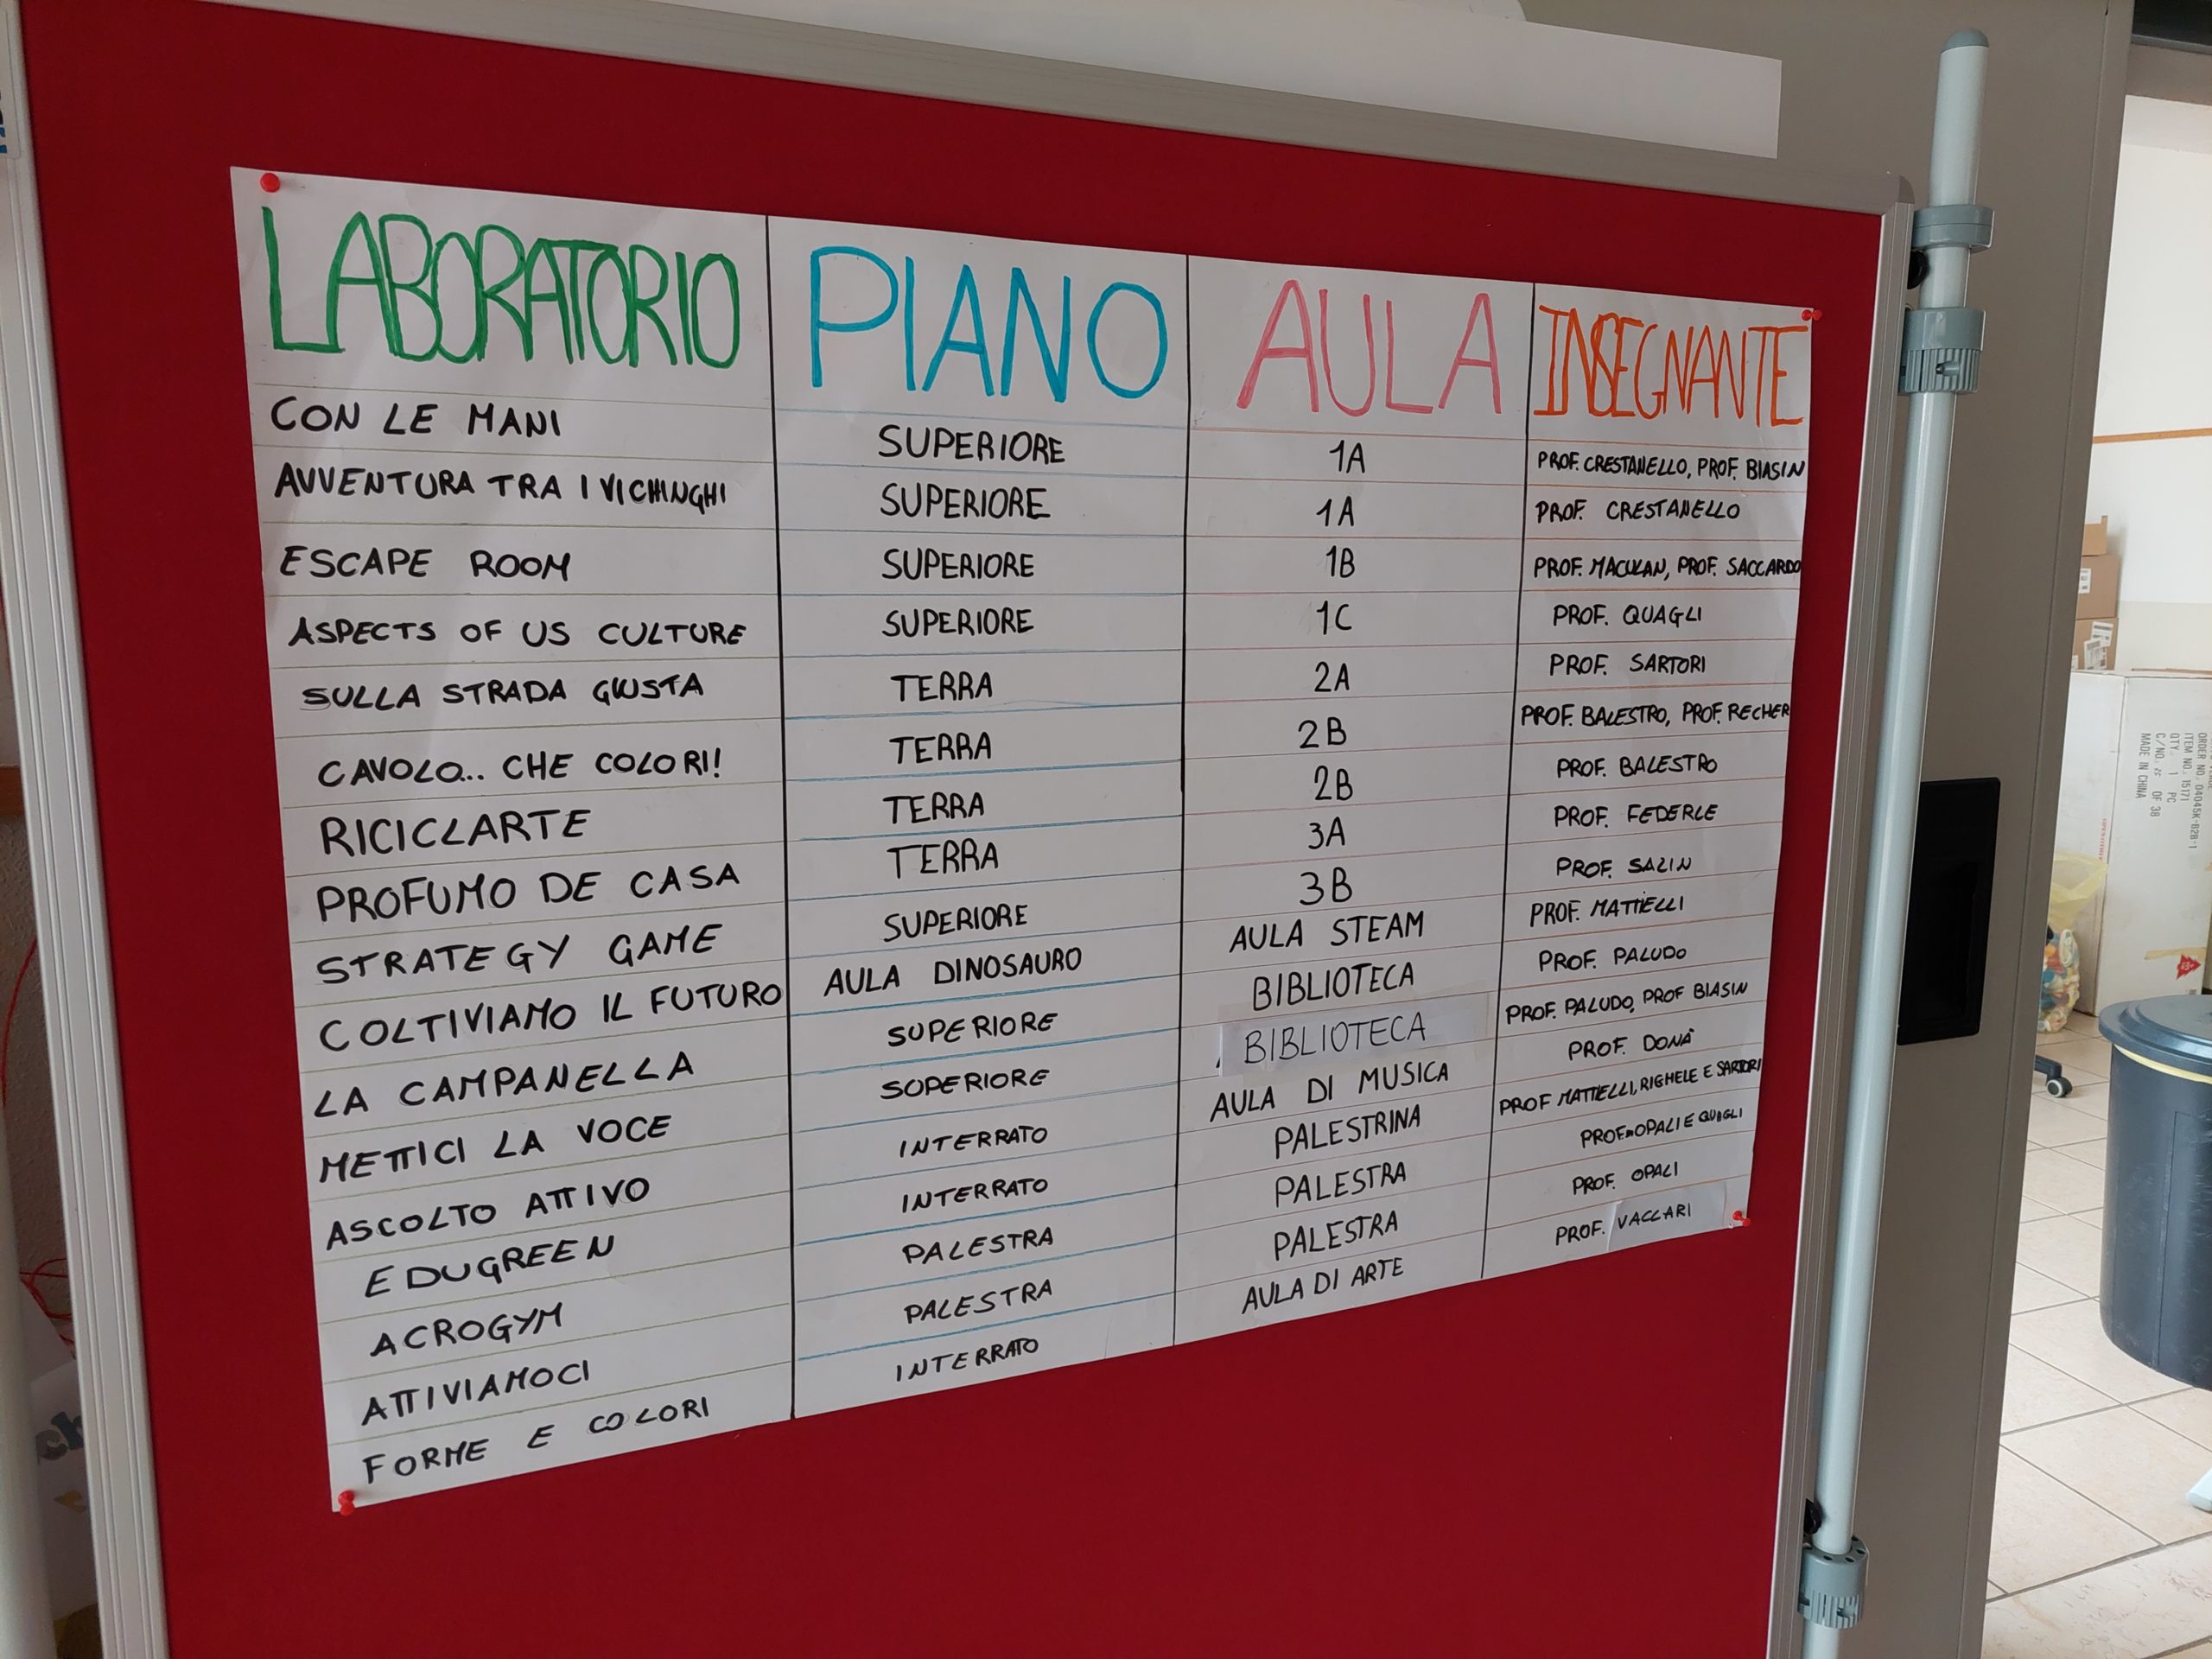 LABORATORIO PIANO AULA INSEGNANTE
CON LE MANI SUPERIORE 1A PROF. CRESTANELLO, PROF. BIASIN
AVVENTURA TRA I VICHINGHI SUPERIORE 1A PROF. CRESTANELLO
ESCAPE ROOM SUPERIORE 1B PROF. MACULAN, PROF. SACCARDO
ASPECTS OF US CULTURE SUPERIORE 1C PROF. QUAGLI
SULLA STRADA GIUSTA TERRA 2A PROF. SARTORI
CAVOLO... CHE COLORI! TERRA 2B PROF. BALESTRO, PROF. RECHER
RICICLARTE TERRA 2B PROF. BALESTRO
PROFUMO DE CASA TERRA 3A PROF. FEDERLE
STRATEGY GAME SUPERIORE 3B PROF. SALIN
COLTIVIAMO IL FUTURO AULA DINOSAURO AULA STEAM PROF. MATTIELLI
LA CAMPANELLA SUPERIORE BIBLIOTECA PROF. PALUDO
METTICI LA VOCE SUPERIORE BIBLIOTECA PROF. PALUDO, PROF BIASIN
ASCOLTO ATTIVO INTERRATO AULA DI MUSICA PROF. DONÀ
EDUGREEN INTERRATO PALESTRINA PROF MATTIELLI, RIGHELE E SARTORI
ACROGYM PALESTRA PALESTRA OPALI E QUAGLI
ATTIVIAMOCI PALESTRA PALESTRA PROF. OPALI
FORME E COLORI INTERRATO AULA DI ARTE PROF. VACCARI
ORDER NO. 04045K-B2B-1
ITEM NO. 15171
QTY. 1 PC
C/NO. OF 38
MADE IN CHINA